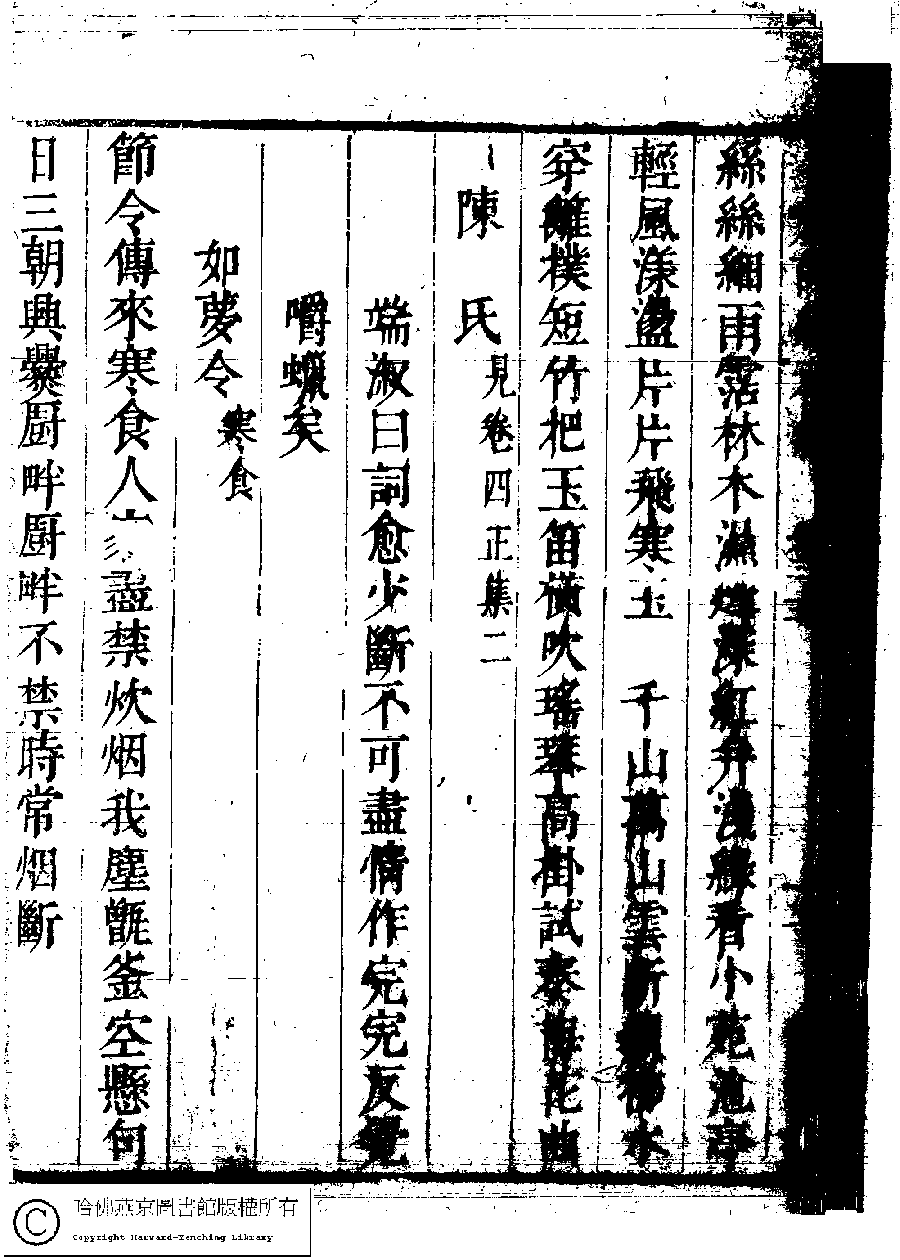 絲絲細雨霑林木濕 深紅井淺綠看小苑池亭
輕風漾盪片片飛寒玉 千山萬山雲斷 水
穿籬撲短竹把玉笛橫吹瑤琴高掛試奏梅花曲
陳氏 見卷四正集二
端淑曰詞愈少斷不可盡情作完完反覺
嚼蠟矣
如夢令 寒食
節令傳來寒食人家盡禁炊烟我塵甑釜空懸何
日三朝興爨厨畔厨畔不禁時常烟斷
哈佛燕京圖書館版權所有
Copyright Harvard-Yenching Library